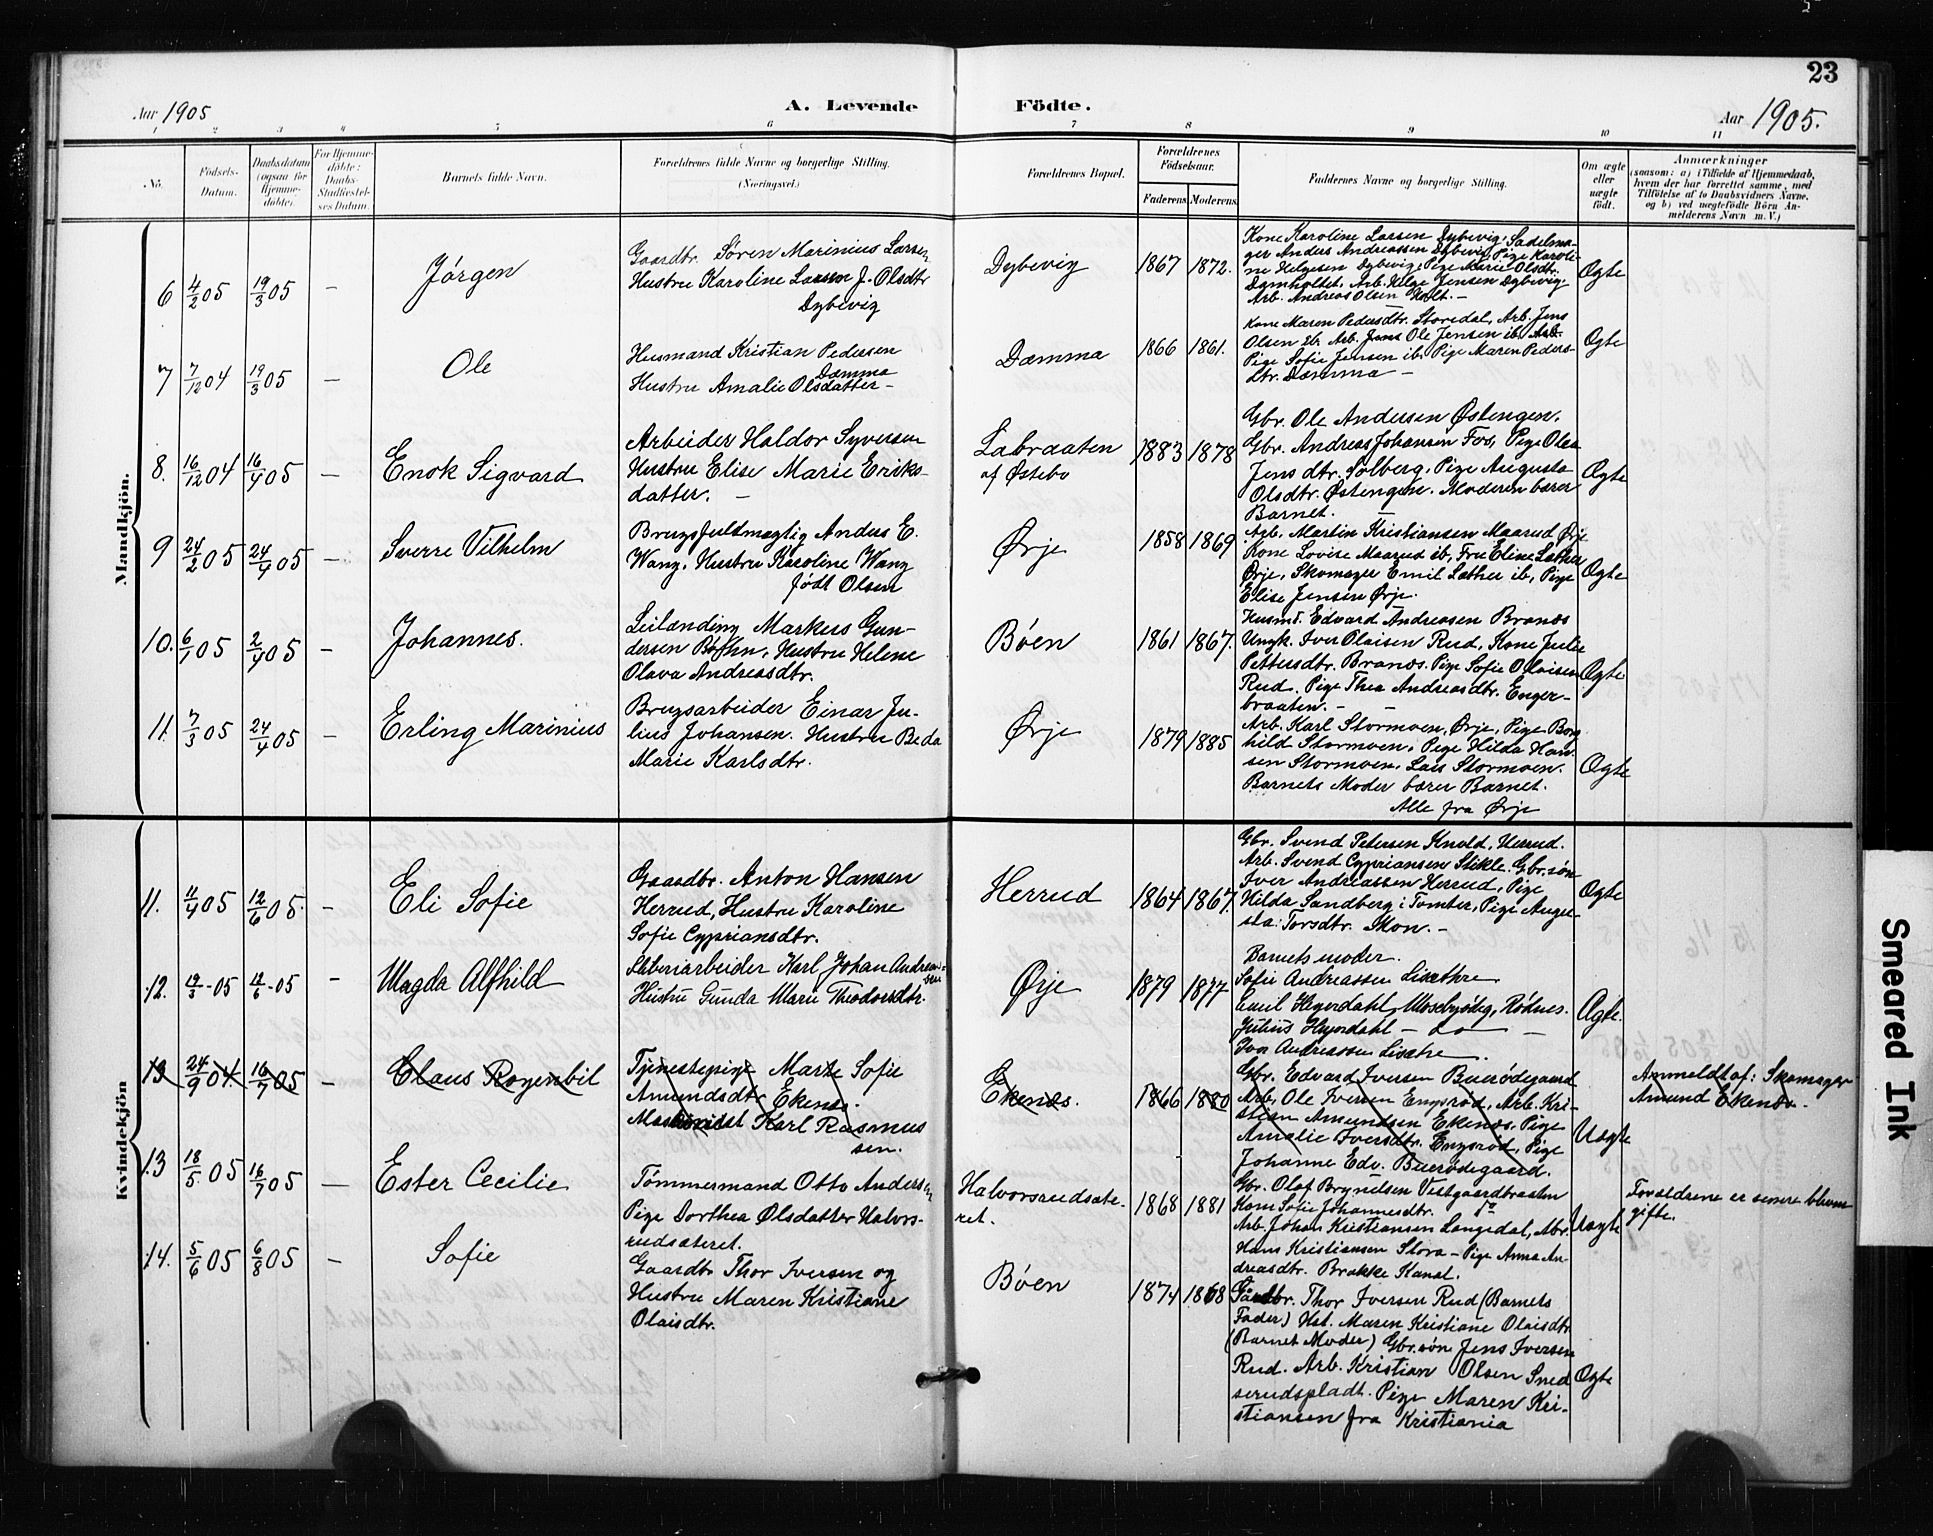 23
Aar 1905
A. Levende
Födte.
Aar 1905.
1 2 3 4 5 6 7 8 9 10 11
No.
Födsels-
Datum.
Daabsdatum
(ogsaa for
Hjemme-
döbte).
For Hjemme-
döbte:
Daabs-
Stadfæstel-
ses Datum.
Barnets fulde Navn.
Forældrenes fulde Navne og borgerlige Stilling.
(Næringsvei.)
Forældrenes Bopæl.
Forældrenes
Födselsaar.
Faderens
Moderens
Faddernes Navne og borgerlige Stilling.
Om ægte
eller
uægte
födt.
Anmærkninger
(saasom: a) i Tilfælde af Hjemmedaab,
hvem der har forrettet samme, med
Tilföielse af to Daabsvidners Navne,
og b) ved uægtefödte Börn An-
melderens Navn m. V.)
Mandkjön.
6 4/2 05 19/3 05 — Jørgen
Gaardbr. Søren Marinius Larsen
Hustru Karoline Larsen f. Olsdtr
Dybevig
Dybevig 1867 1872.
Kone Karoline Larsen Dybevig, Sadelma-
ger Anders Andreassen Dybevig, Pige Karoli-
ne Helgesen Dybevig, Pige Marie Olsdtr.
Damholtet, Arb. Helge Jensen Dybevig.
Arb. Andreas Olsen Holt. —
Ægte
7 7/12 04 19/3 05 — Ole
Husmand Kristian Pedersen
Dæmma
Hustru Amalie Olsdatter —
Dæmma 1866 1861.
Kone Maren Pedersdtr. Storedal, Arb. Jens
Olsen ib. Arb. Jens Ole Jensen ib. Arb.
Pige Sofie Jensen ib, Pige Maren Peders-
dtr. Dæmma —
Ægte
8. 16/12 04 16/4 05 — Enok Sigvard
Arbeider Haldor Syversen
Hustru Elise Marie Eriks-
datter. —
Labraaten
af Østebø
1883 1878
Gbr. Ole Andersen Østengen.
Gbr. Andreas Johansen Fos, Pige Olea
Jensdtr. Solberg, Pige Augusta
Olsdtr. Østengen. Moderen bærer
Barnet.
Ægte
9 24/2 05 24/4 05 — Sverre Vilhelm
Brugsfuldmægtig Anders E.
Wang, Hustru Karoline Wang
født Olsen
Ørje 1858 1869
Arb. Martin Kristiansen Maarud Ørje
Kone Lovise Maarud ib, Fru Eline Læther
Ørje, Skomager Emil Læther ib, Pige
Elise Jensen Ørje.
Ægte
10. 6/1 05 2/4 05 — Johannes.
Leilænding Markus Gun-
dersen Bøhn, Hustru Helene
Olava Andreasdtr.
Bøen 1861 1867.
Husmd. Edvard Andreasen Branæs
Ungk. Iver Olaisen Rud, Kone Julie
Pettersdtr. Branæs. Pige Sofie Olaisen
Rud. Pige Thea Andreasdtr. Enger-
braaten. —
Ægte
11. 7/3 05 24/4 05 — Erling Marinius
Brugsarbeider Einar Ju-
lius Johansen. Hustru Beda
Marie Karlsdtr.
Ørje 1879 1885
Arb. Karl Stormoen, Ørje, Pige Borg
hild Stormoen, Pige Hilda Han-
sen Stormoen, Lars Stormoen.
Barnets Moder bærer Barnet.
Alle fra Ørje
Ægte
Kvindekjön
11. 11/4 05 12/6 05. — Eli Sofie
Gaardbr. Anton Hansen
Herrud, Hustru Karoline
Sofie Cypriansdtr.
Herrud 1864 1867.
Gbr. Svend Petersen Knold, Herrud.
Arb. Svend Cypriansen Stikle. Gbr. søn
Iver Andreassen Herrud, Pige
Hilda Sandberg i Tomter, Pige Augu-
sta Torsdtr. Mon. —
Ægte
12. 19/3 - 05 12/6 - 05 — Magda Alfhild
Sliberiarbeider Karl Johan Andreas-
sen
Hustru Gunda Marie Theodorsdtr.
Ørje 1879 1877
Barnets moder.
Sofie Andreassen Lisæthre
Emil Heyerdahl, Mosebyødeg, Rødnes.
Julius Heyerdahl — do —
Ivar Andreassen Lisætre.
Ægte.
13 24/9 04 16/7 05 — Claus Rogenbil
Tjenestepige Marte Sofie
Amundsdtr Ekenæs.
Maskinist Karl Rasmus
sen.
Ekenæs. 1866 1880
Gbr. Edvard Iversen Buerødegaard
Arb. Ole Iversen Engsrød, Arb. Kri-
stian Amundsen Ekenæs. Pige
Amalie Iversdtr. Engsrød, Pige
Johanne Edv. Buerødegaard.
Uægte
Anmeldt af: Skomager
Amund Ekenæs.
13 18/5. 05 16/7 05 — Ester Cecilie
Tømmermand Otto Andersen
Pige Dorthea Olsdatter Halvors-
rudsæteret.
Halvorsrudsæte-
ret.
1868 1881
Gbr. Olaf Bryndelsen Vestgaardbraaten
Kone Sofie Johannesdtr. do
Arb. Johan Kristiansen Langedal, Arb.
Hans Kristiansen Stora — Pige Anna An-
dreasdtr. Brække Kanal.
Uægte
Forældrene er senere blevne
gifte.
14. 5/6 05 6/8 05 — Sofie
Gaardbr Thor Iversen og
Hustru Maren Kristiane
Olaisdtr.
Bøen 1874 1868
Gaardbr. Thor Iversen Rud (Barnets
Fader) Hst. Maren Kristiane Olaisdtr
(Barnet Moder) Gbr. søn Jens Iversen
Rud. Arb. Kristian Olsen Sned
serudspladt. Pige Maren Kri-
stiansen fra Kristiania
Ægte
Smeared Ink